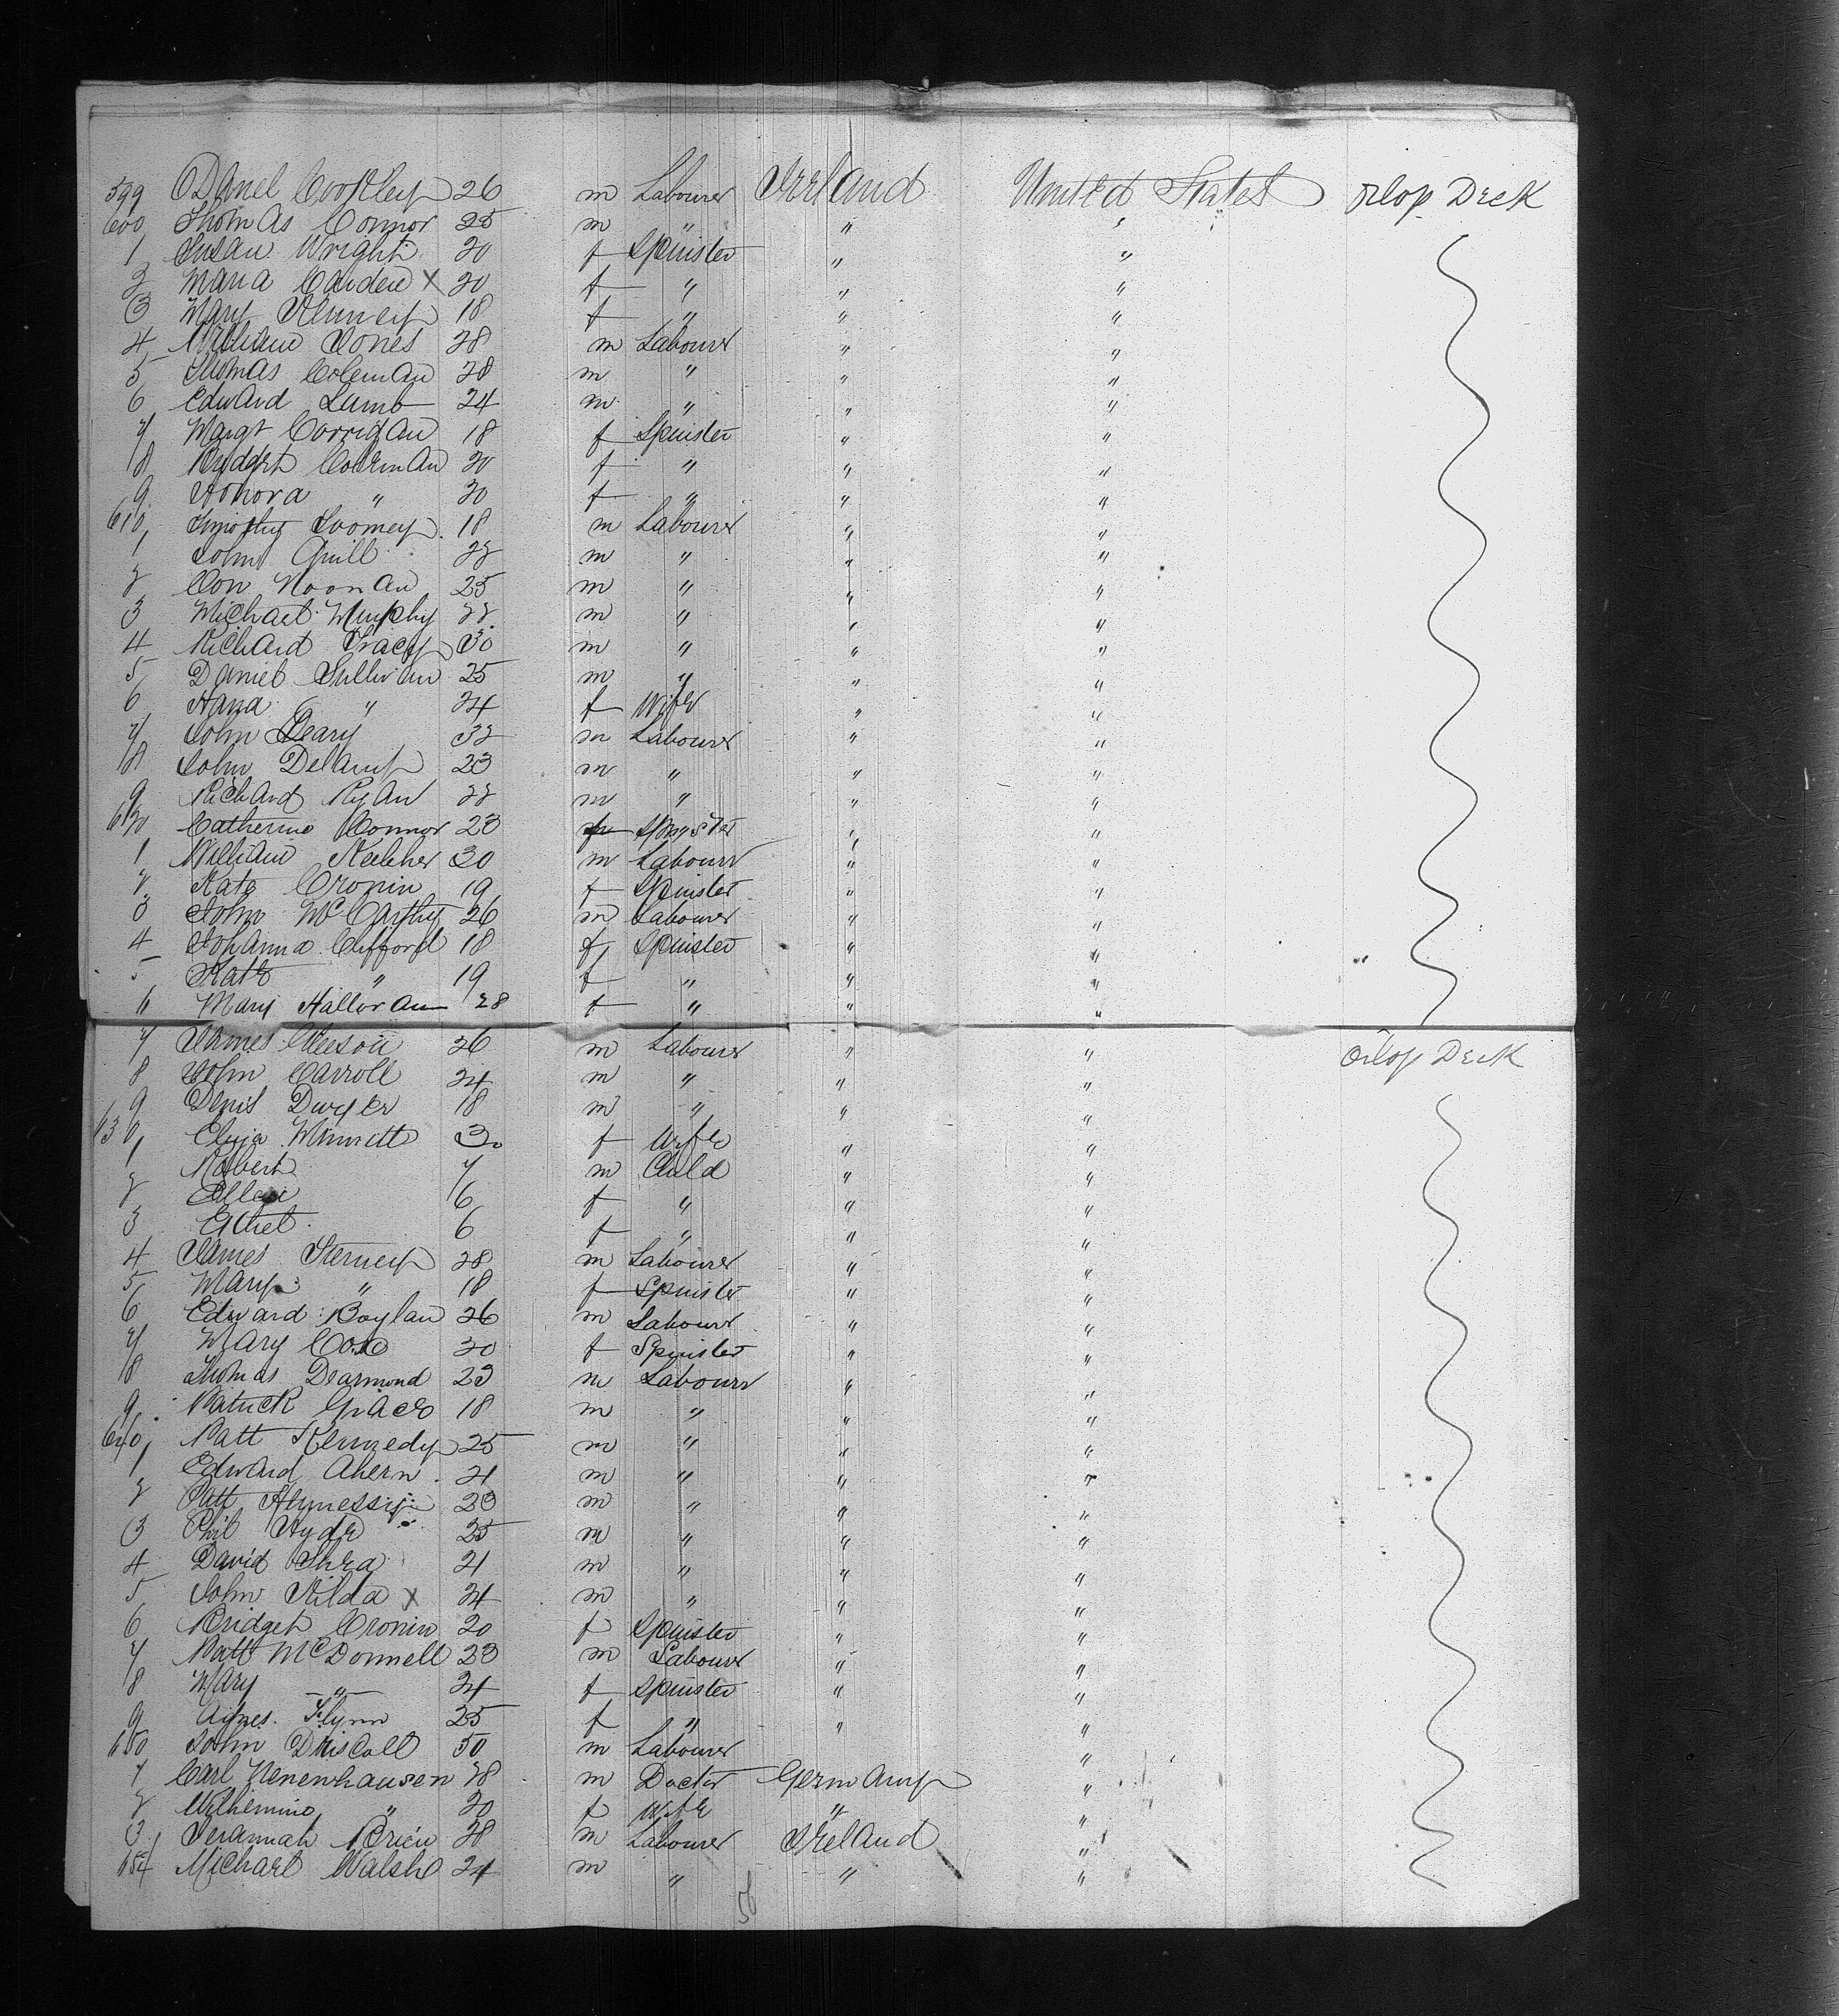 599 Daniel Cookley 26 m Labourer Ireland United States Orlop Deck
600 Thomas Connor 25 m " " "
1 Susan Wright 20 f Spinster " "
2 Maria Carden X 20 f " " "
3 Mary Kenney 18 f " " "
4 William Jones 28 m Labourer " "
5 Thomas Coleman 28 m " " "
6 Edward Lamb 24 m " " "
7 Margt Corrigan 18 f Spinster " "
8 Bridget Coleman 20 f " " "
9 Honora " 20 f " " "
610 Timothy Toomey 18 m Labourer " "
1 John Quill 22 m " " "
2 Con Noonan 25 m " " "
3 Michael Murphy 22 m " " "
4 Richard Tracy 30 m " " "
5 Daniel Sullivan 25 m " " "
6 Hana " 24 f Wife " "
7 John Leary 32 m Labourer " "
8 John Delany 23 m " " "
9 Richard Ryan 22 m " " "
620 Catherine Connor 23 f Spinster " "
1 William Keleher 30 m Labourer " "
2 Kate Cronin 19 f Spinster " "
3 John McCarthy 26 m Labourer " "
4 Johanna Clifford 18 f Spinster " "
5 Kate " 19 f " " "
6 Mary Halloran 28 f " " "
7 James Gleeson 26 m Labourer " " Orlop Deck
8 John Carroll 24 m " " "
9 Denis Dwyer 18 m " " "
630 Eliza Minnett 30 f Wife " "
1 Robert 7 m Child " "
2 Ellen 6 f " " "
3 Ethel 6 f " " "
4 James Sterney 28 m Labourer " "
5 Mary " 18 f Spinster " "
6 Edward Boylan 26 m Labourer " "
7 Mary Cox 20 f Spinster " "
8 Thomas Dearmond 23 m Labourer " "
9 Patrick Grace 18 m " " "
640 Patt Kennedy 25 m " " "
1 Edward Ahern 21 m " " "
2 Patt Hynessy 23 m " " "
3 Phil Hyde 25 m " " "
4 David Shea 21 m " " "
5 John Kilda X 24 m " " "
6 Bridget Cronin 20 f Spinster " "
7 Patt McDonnell 23 m Labourer " "
8 Mary " 24 f Spinster " "
9 Agnes Flynn 25 f " " "
650 John Driscoll 50 m Labourer "
1 Carl Nenenhausen 28 m Doctor Germany "
2 Wilhemina " 20 f Wife " "
3 Jeramiah Brien 28 m Labourer Ireland "
654 Michael Walsh 24 m " " "
56